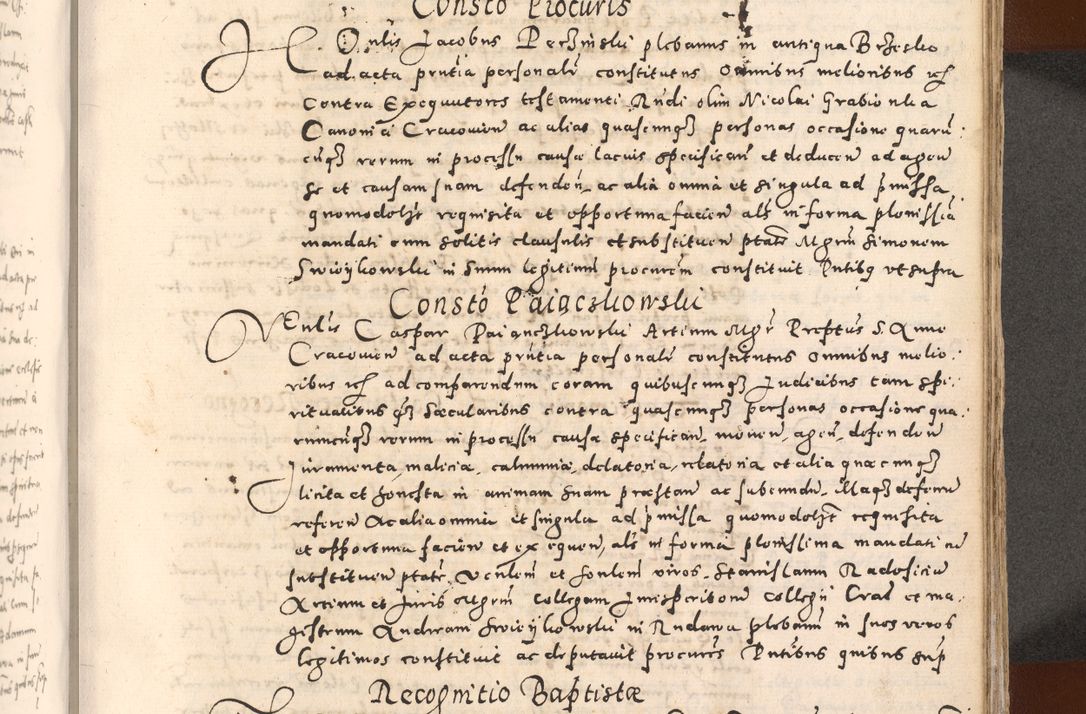 Consto Procuris
Honlis Jacobus Perzinski plebanus in antiqua Brzesko
ad acta prntia personalr constitutus omnibus melioribus
Contra Exequutores testamenti Rndi olim Nicolai Grabionka
Canonici Cracovien ac alias quascunqz personas occasione quaru:
cuqz rerum in processu causae lacius specifican et deducen ad agen
se et causam suam defenden ac alia omnia et singula ad pmissa
quomodolzt requisita et opportuna facien als in forma plenissia
mandati cum solitis clausulis et substituen ptate Mgrm Simonem
Swieykowski in Suum legitimu procurem constituit Pntibq ut supra
Consto Paiaczkowski
VEnlis Caspar Paianczkowski Artium Mgr Preptus S Anne
Cracovien ad acta prntia personalr constitutus omnibus melio:
ribus ad comparendum coram quibuscunqz Judicibus tam spi:
ritualibus qz Saecularibus contra quascunqz personas occasione qua:
rumcuqz rerum in processu causae specifican, moven, agen, defenden
Juramenta, malicia, calumniae, delatoria, relatoria et alia quaecunqz
licita et honesta in animam suam praestan ac subeundu, Illaqz deferen
referen Ac alia omnia et singula ad pmissa quomodolzt requisita
et opportuna facien et exequen, als in forma plenissima mandati ac
substituen ptate, Venlem et honlem viros, Stanislaum Radosicium
Artium et Juris Mgrm Collegam Jurisperitorum Collegii Crac et ma:
gistrum Andream Swieykowski in Rudawa plebanu in suos veros
legitimos constituit ac deputavit procures Pntibus quibus sup
Recognitio Baptistae